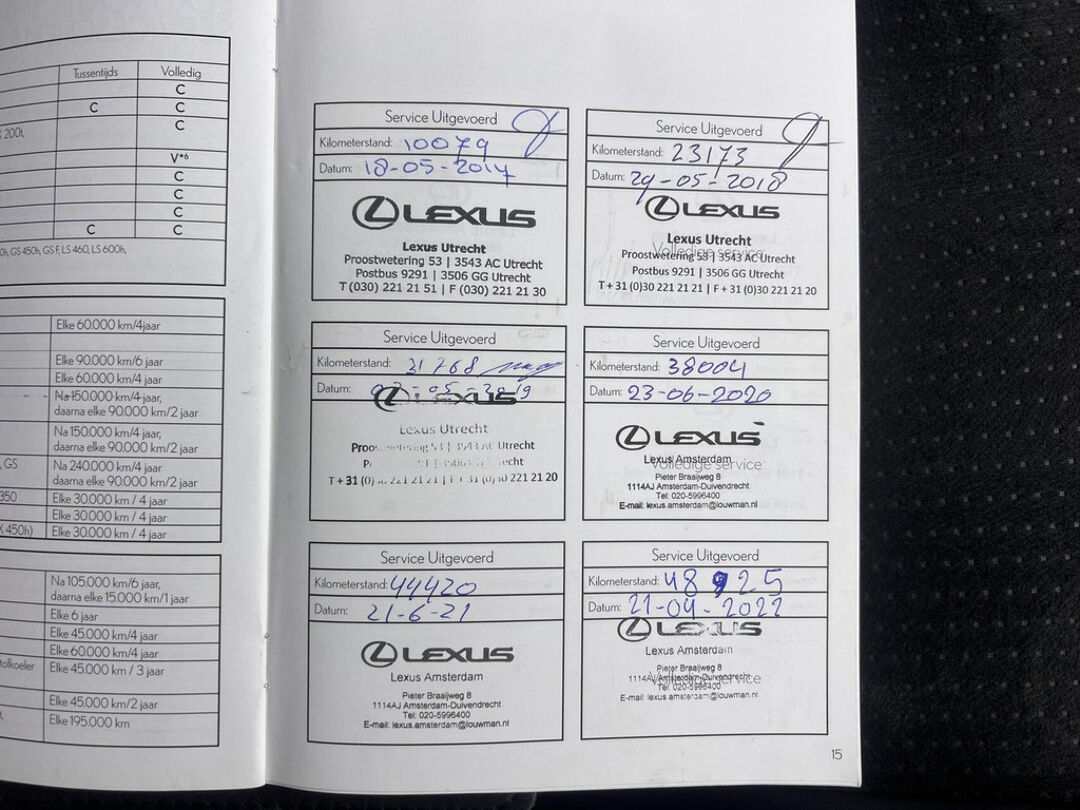 Tussentijds Volledig
C
C C
200t, C
V*6
C
C
C
C C
GS 450h, GS F, LS 460, LS 600h,
Elke 60.000 km/4jaar
Elke 90.000 km/6 jaar
Elke 60.000 km/4 jaar
Na 150.000 km/4 jaar,
daarna elke 90.000 km/2 jaar
Na 150.000 km/4 jaar,
daarna elke 90.000 km/2 jaar
, GS Na 240.000 km/4 jaar
daarna elke 90.000 km/2 jaar
350 Elke 30.000 km / 4 jaar
Elke 30.000 km / 4 jaar
X 450h) Elke 30.000 km / 4 jaar
Na 105.000 km/6 jaar,
daarna elke 15.000 km/1 jaar
Elke 6 jaar
Elke 45.000 km/4 jaar
Elke 60.000 km/4 jaar
Elke 45.000 km / 3 jaar
Elke 45.000 km/2 jaar
Elke 195.000 km
Service Uitgevoerd
Kilometerstand: 10079
Datum: 18-05-2017
LEXUS
Lexus Utrecht
Proostwetering 53 | 3543 AC Utrecht
Postbus 9291 | 3506 GG Utrecht
T (030) 221 21 51 | F (030) 221 21 30
Service Uitgevoerd
Kilometerstand: 23173
Datum: 29-05-2018
LEXUS
Lexus Utrecht
Volledige service
Proostwetering 53 | 3543 AC Utrecht
Postbus 9291 | 3506 GG Utrecht
T + 31 (0)30 221 21 21 | F + 31 (0)30 221 21 20
Service Uitgevoerd
Kilometerstand: 31768
Datum: 03-05-2019
LEXUS
Lexus Utrecht
Proostwetering 53 | 3543 AC Utrecht
Utrecht
221 21 20
Service Uitgevoerd
Kilometerstand: 38004
Datum: 23-06-2020
LEXUS
Lexus Amsterdam
Volledige service
Pieter Braaijweg 8
1114AJ Amsterdam-Duivendrecht
Tel: 020-5996400
E-mail: lexus.amsterdam@louwman.nl
Service Uitgevoerd
Kilometerstand: 44420
Datum: 21-6-21
LEXUS
Lexus Amsterdam
Pieter Braaijweg 8
1114AJ Amsterdam-Duivendrecht
Tel: 020-5996400
E-mail: lexus.amsterdam@louwman.nl
Service Uitgevoerd
Kilometerstand: 48925
Datum: 21-04-2022
LEXUS
Lexus Amsterdam
Pieter Braaijweg 8
1114AJ Amsterdam-Duivendrecht
Volledige service
Tel: 020-5996400
E-mail: lexus.amsterdam@louwman.nl
15